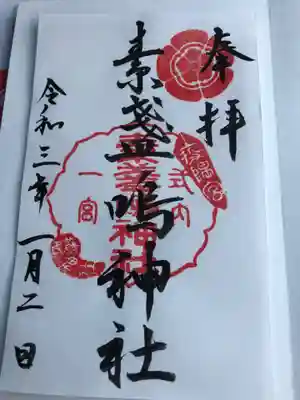 奉拝
素盞嗚神社
式内
素盞嗚神社
一宮
令和三年一月二日